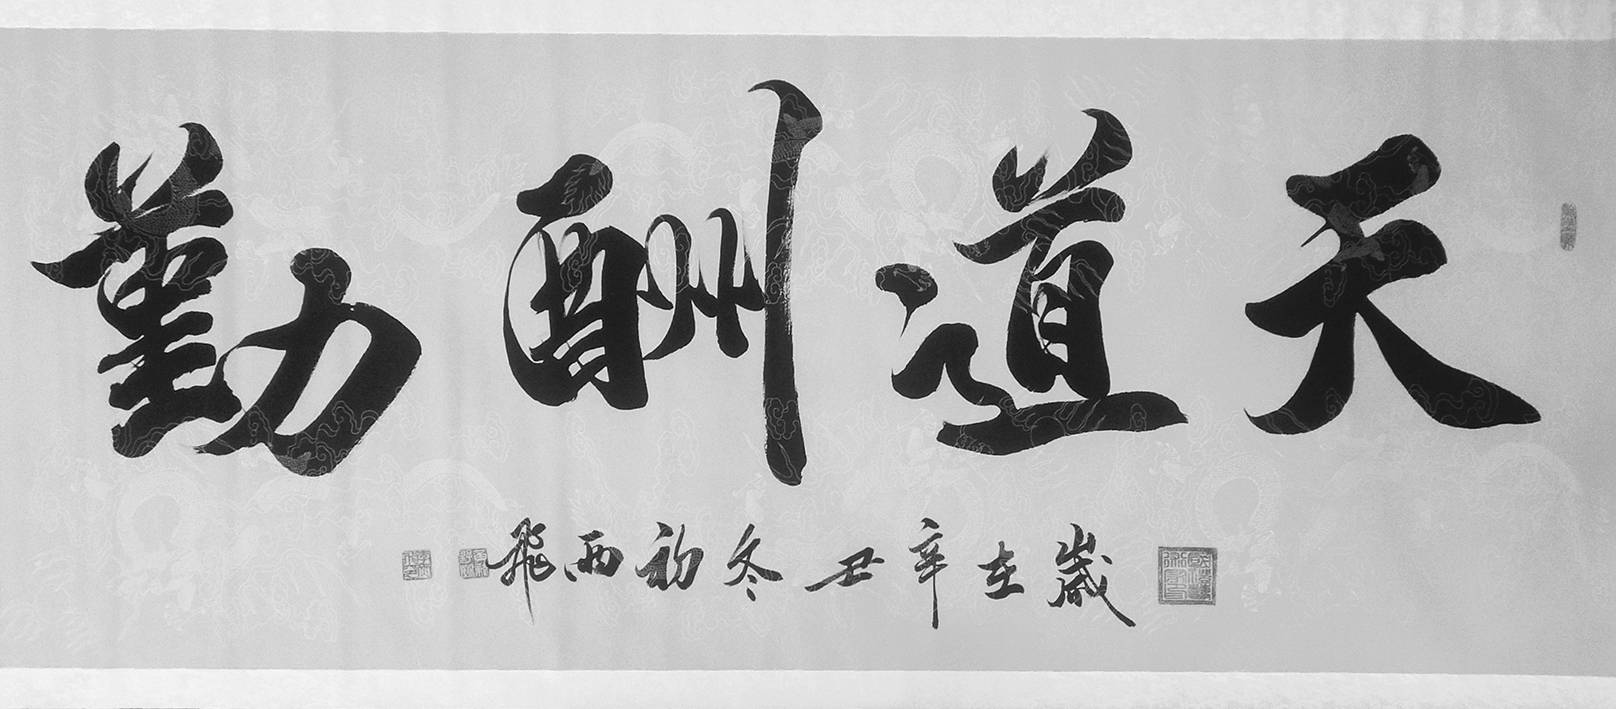 天道酬勤
歲在辛丑冬初西飛